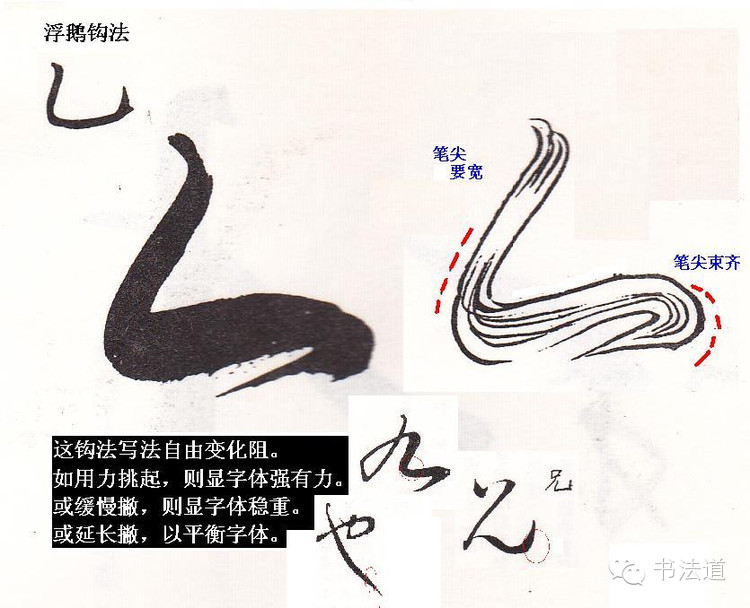 浮鹅钩法
乚
笔尖
要宽
笔尖束齐
这钩法写法自由变化阻。
如用力挑起，则显字体强有力。
或缓慢撇，则显字体稳重。
或延长撇，以平衡字体。
九
也
兄
兄
书法道